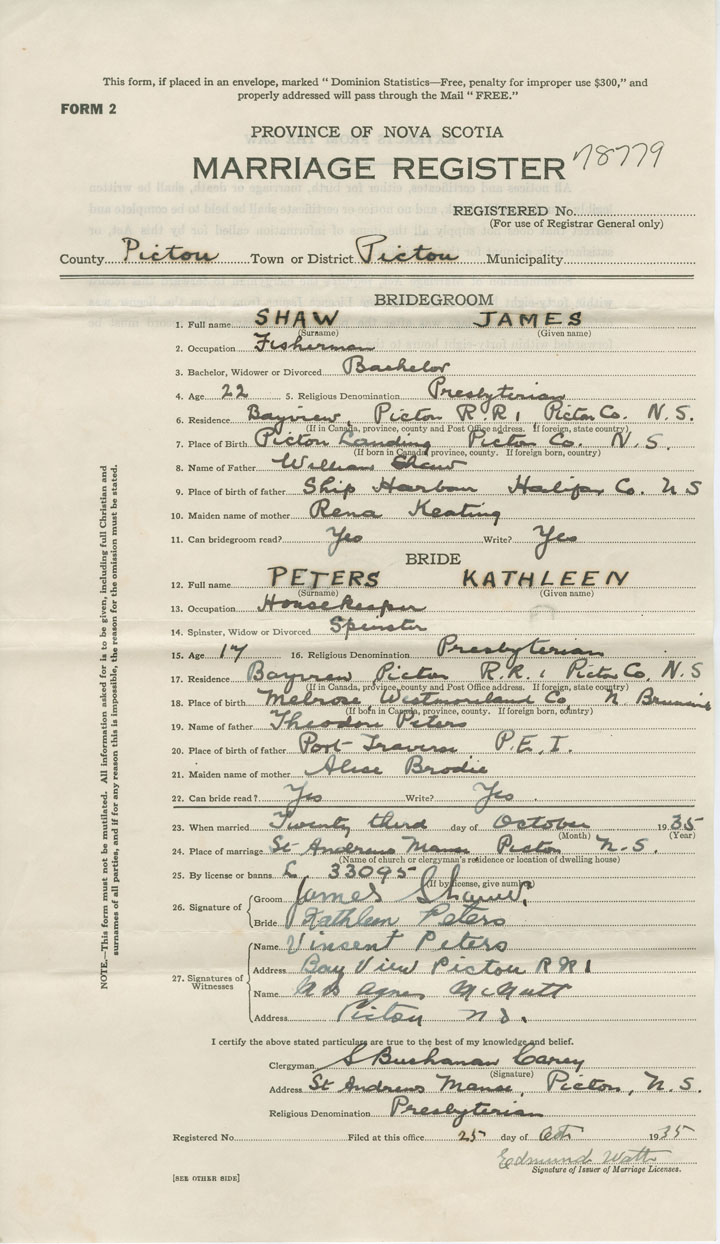 This form, if placed in an envelope, marked “ Dominion Statistics—Free, penalty for improper use $300,” and
properly addressed will pass through the Mail “ FREE.”
FORM 2
PROVINCE OF NOVA SCOTIA
MARRIAGE REGISTER 78779
REGISTERED No.
(For use of Registrar General only)
County Pictou Town or District Pictou Municipality
BRIDEGROOM
1. Full name SHAW JAMES
(Surname) (Given name)
2. Occupation Fisherman
3. Bachelor, Widower or Divorced Bachelor
4. Age 22 5. Religious Denomination Presbyterian
6. Residence Bayview, Pictou R.R. 1 Pictou Co. N.S.
(If in Canada, province, county and Post Office address. If foreign, state country)
7. Place of Birth Pictou Landing Pictou Co. N.S.
(If born in Canada, province, county. If foreign born, country)
8. Name of Father William Shaw
9. Place of birth of father Ship Harbour Halifax Co. N S
10. Maiden name of mother Rena Keating
11. Can bridegroom read? Yes Write? Yes
BRIDE
12. Full name PETERS KATHLEEN
(Surname) (Given name)
13. Occupation Housekeeper
14. Spinster, Widow or Divorced Spinster
15. Age 17 16. Religious Denomination Presbyterian
17. Residence Bayview Pictou R.R. 1 Pictou Co, N.S
(If in Canada, province, county and Post Office address. If foreign, state country)
18. Place of birth Melrose Westmorland Co N.
(If born in Canada, province, county. If foreign born, country)
19. Name of father Theodore Peters
20. Place of birth of father Port Traverse P.E.I.
21. Maiden name of mother Alice Brodie
22. Can bride read? Yes Write? Yes
23. When married Twenty third day of October 1935
(Month) (Year)
24. Place of marriage St Andrews Manse Pictou N.S.
(Name of church or clergyman's residence or location of dwelling house)
25. By license or banns L 33095
(If by license, give number)
26. Signature of
Groom James Shaw
Bride Kathleen Peters
27. Signatures of Witnesses
Name Vinsent Peters
Address Bay View Pictou R R 1
Name Agnes McNutt
Address Pictou N.S.
I certify the above stated particulars are true to the best of my knowledge and belief.
Clergyman S Buchanan Carey
(Signature)
Address St Andrews Manse, Pictou, N.S.
Religious Denomination Presbyterian
Registered No. Filed at this office 25 day of Oct. 1935
Edmund Watt
Signature of Issuer of Marriage Licenses.
[SEE OTHER SIDE]
NOTE.—This form must not be mutilated. All information asked for is to be given, including full Christian and
surnames of all parties, and if for any reason this is impossible, the reason for the omission must be stated.